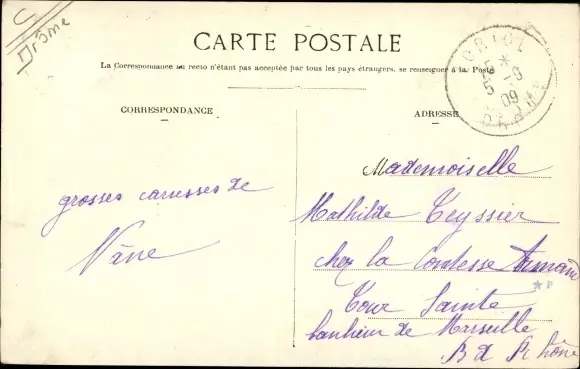 Drôme
CARTE POSTALE
La Correspondance au recto n'étant pas acceptée par tous les pays étrangers, se renseigner à la Poste
CORRESPONDANCE
ADRESSE
ORIOL
5 - 9
09
DROME
grosses caresses de
Nâne
Mademoiselle
Mathilde Teyssier
chez la Comtesse Armand
Tour Sainte
banlieue de Marseille
B d Rhône